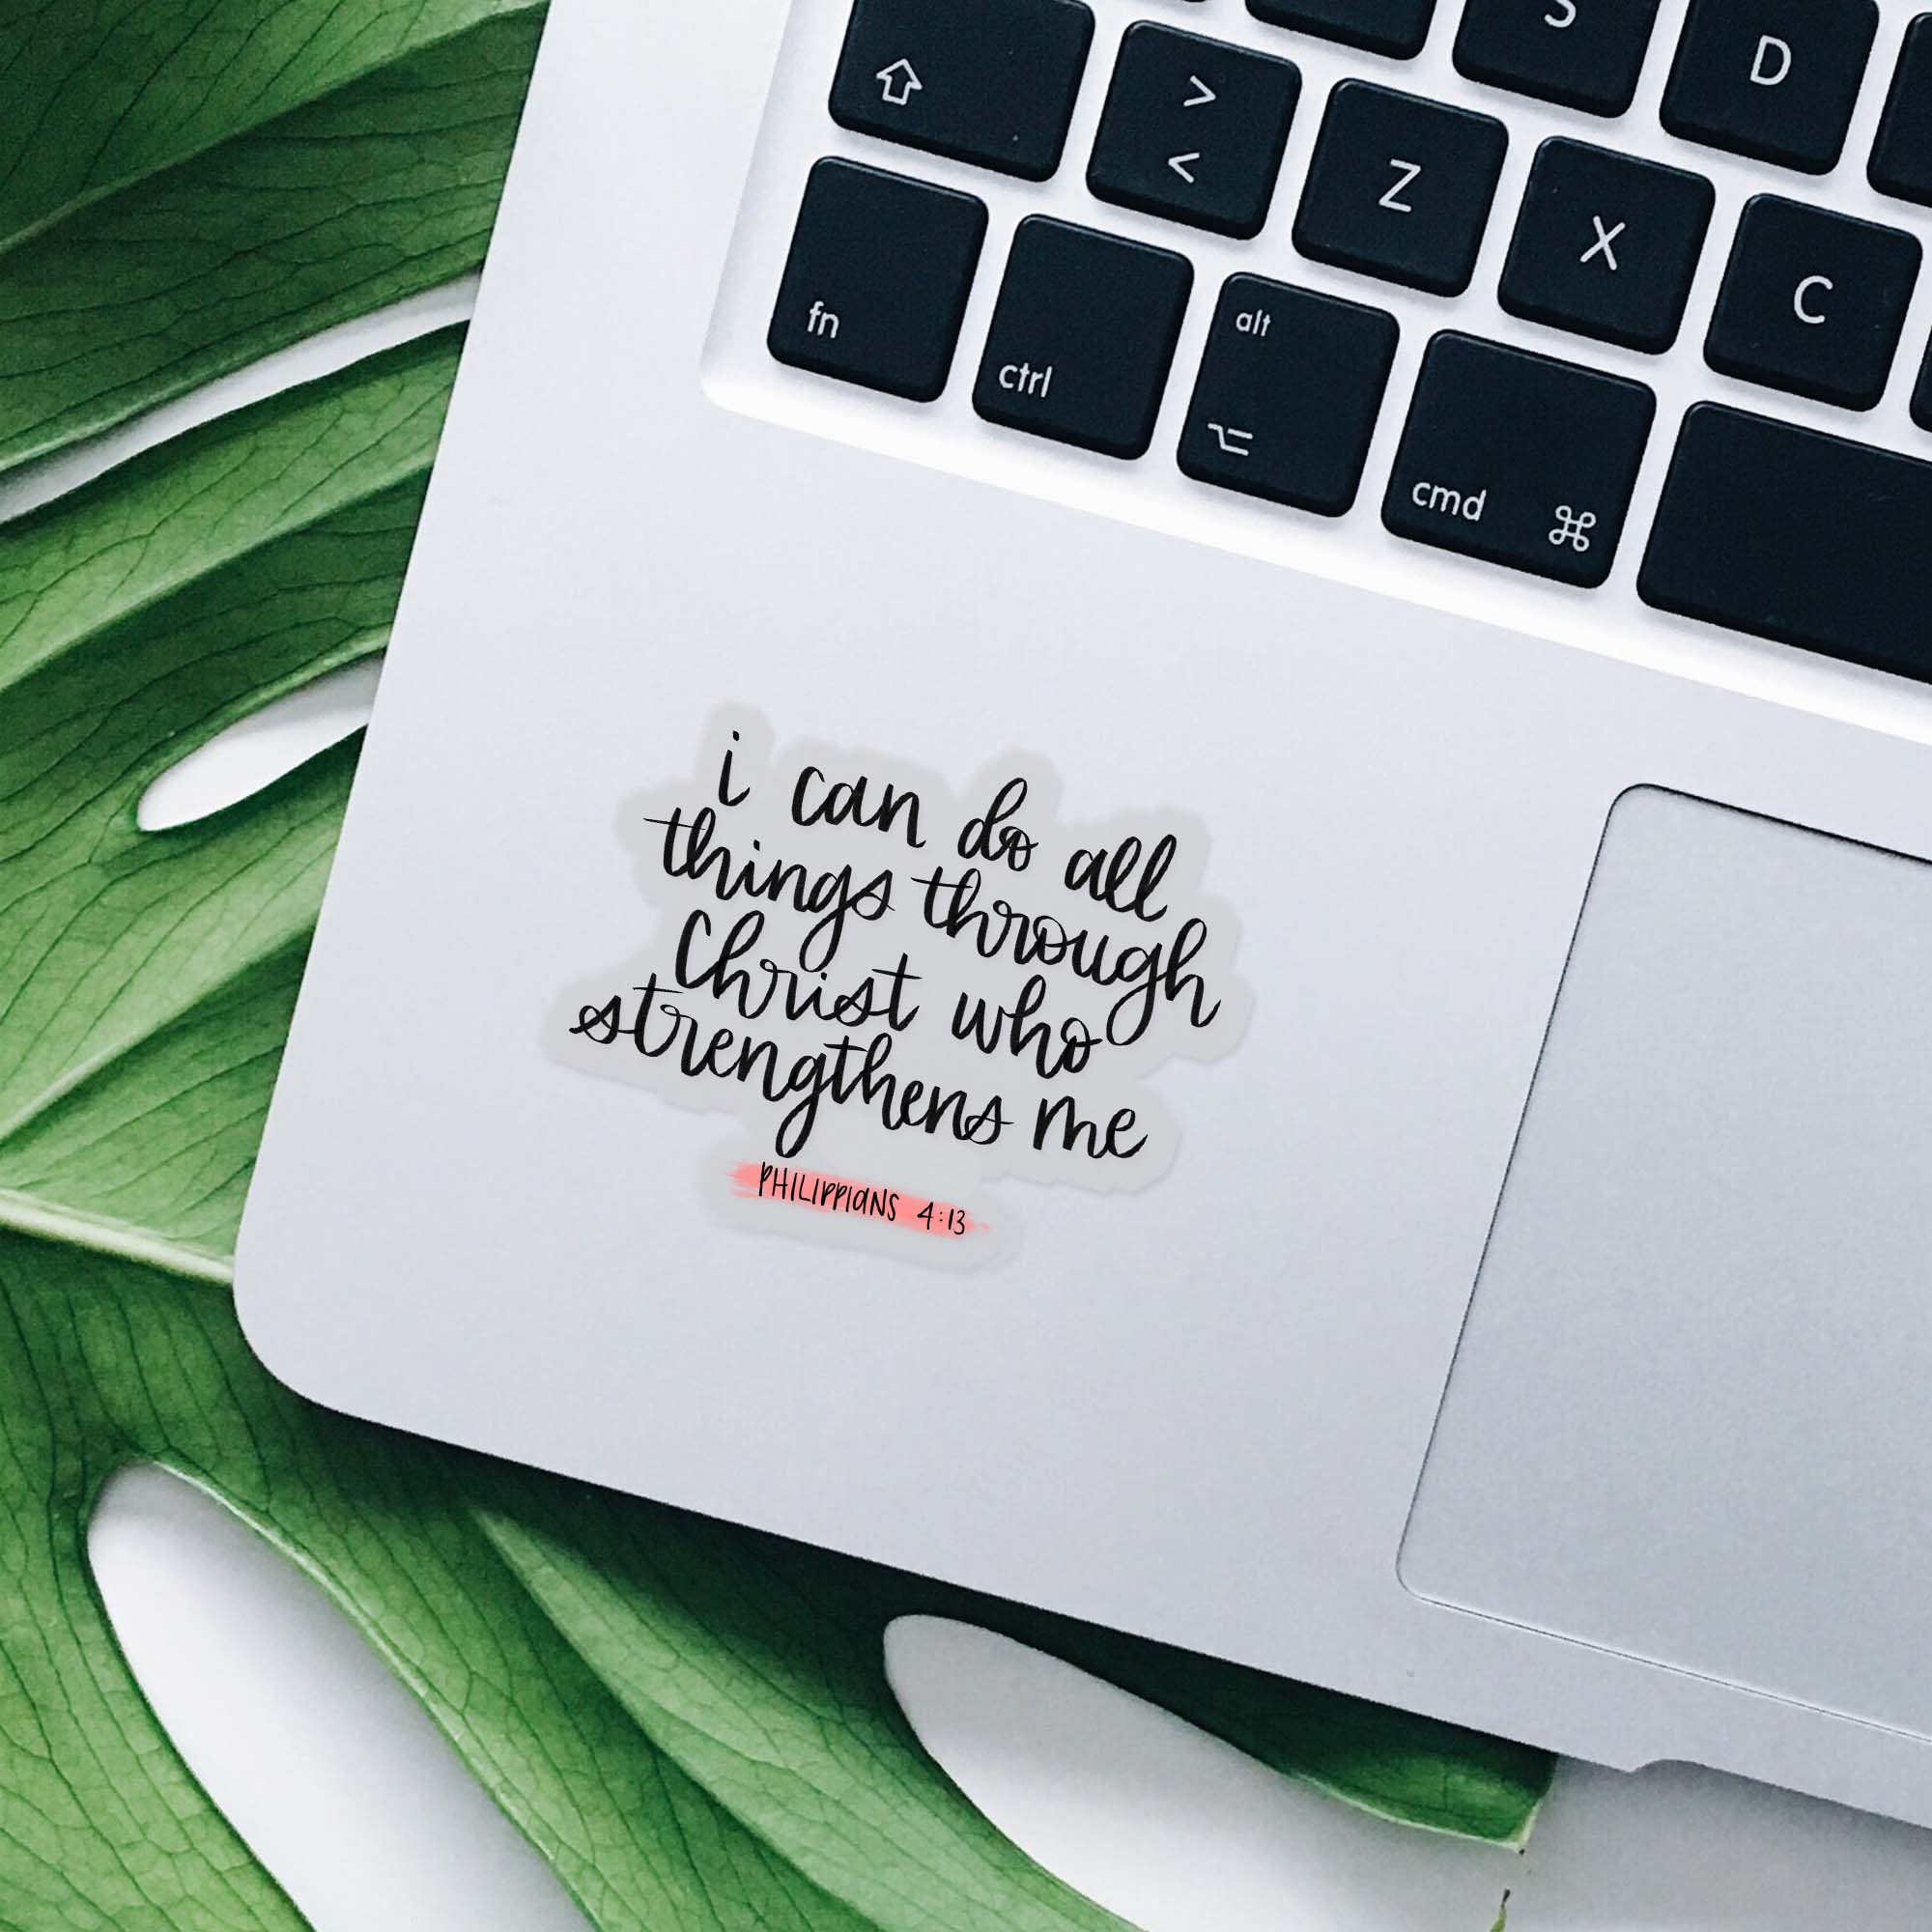 S
D
>
<
Z
X
C
fn
ctrl
alt
cmd ⌘
i can do all
things through
Christ who
strengthens me
PHILIPPIANS 4:13